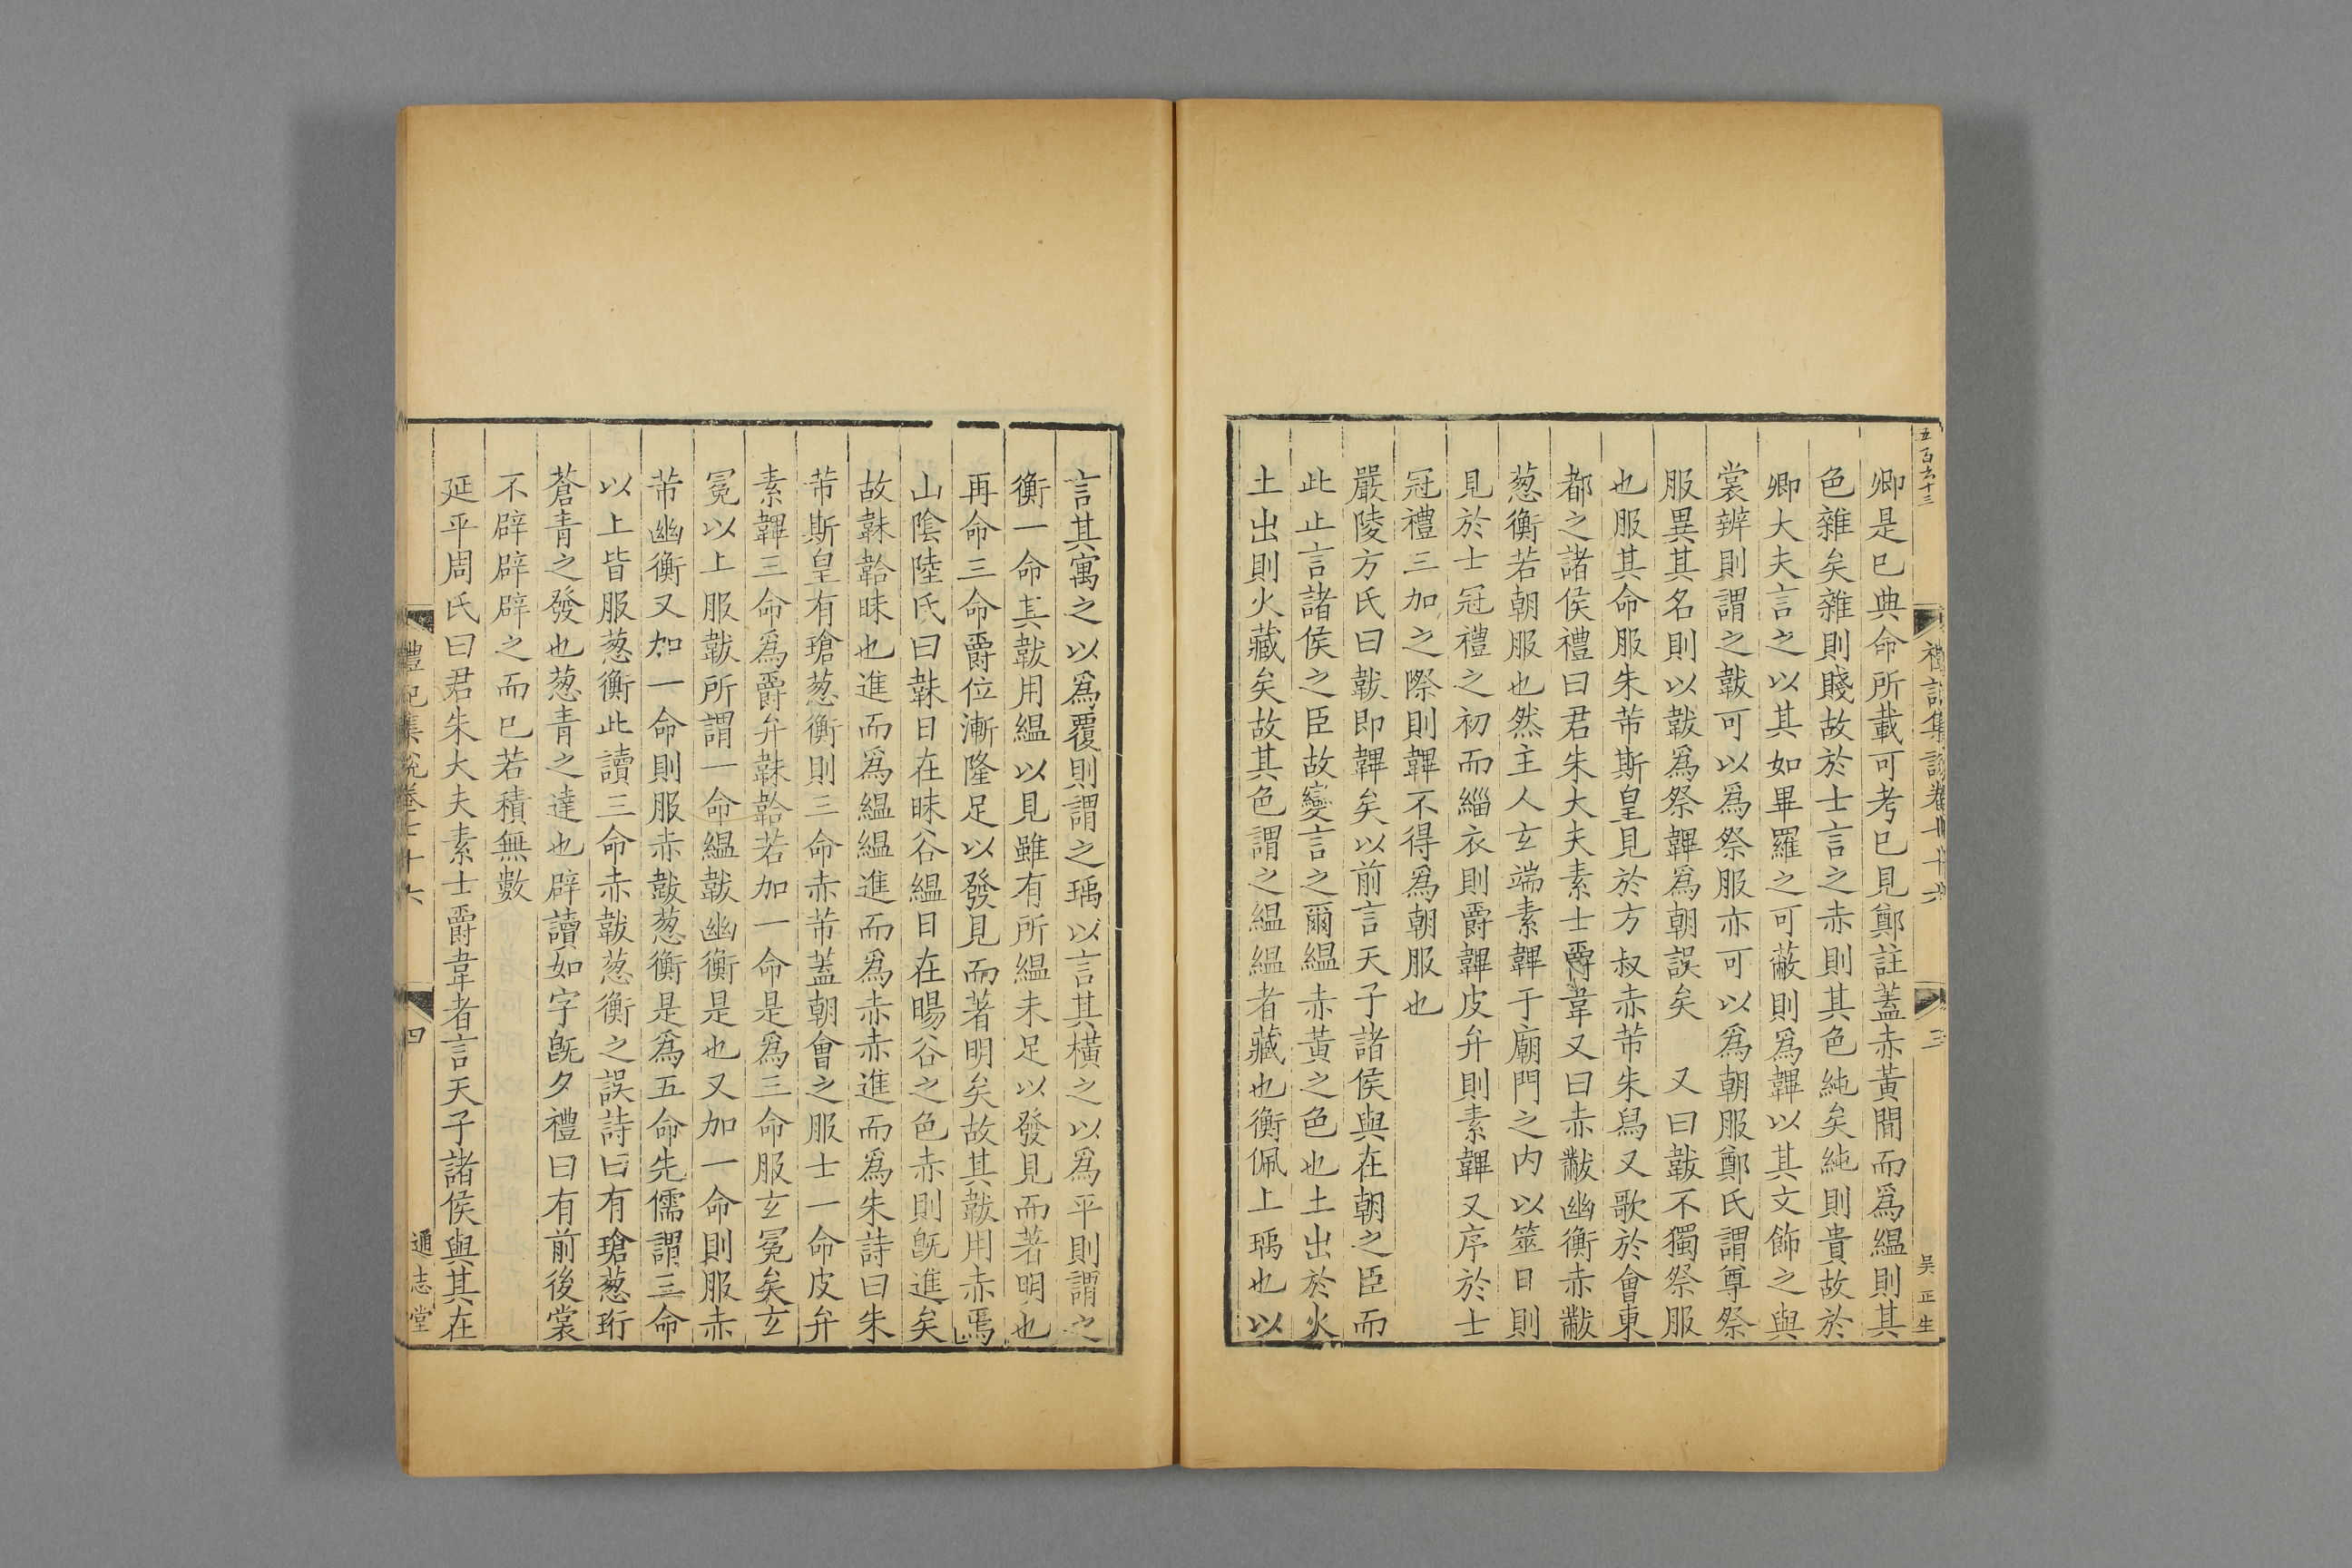 五百六十三
禮記集說卷七十六
三
吴正生
卿是巳典命所載可考巳見鄭註蓋赤黃間而爲縕則其
色雜矣雜則賤故於士言之赤則其色純矣純則貴故於
卿大夫言之以其如畢羅之可蔽則爲韠以其文飾之與
裳辨則謂之韍可以爲祭服亦可以爲朝服鄭氏謂尊祭
服異其名則以韍爲祭韠爲朝誤矣 又曰韍不獨祭服
也服其命服朱芾斯皇見於方叔赤芾朱舄又歌於會東
都之諸侯禮曰君朱大夫素士爵韋又曰赤黻幽衡赤黻
葱衡若朝服也然主人玄端素韠于廟門之内以筮日則
見於士冠禮之初而緇衣則爵韠皮弁則素韠又序於士
冠禮三加之際則韠不得爲朝服也
嚴陵方氏曰韍即韠矣以前言天子諸侯與在朝之臣而
此止言諸侯之臣故變言之爾縕赤黃之色也土出於火
土出則火藏矣故其色謂之縕縕者藏也衡佩上瑀也以
言其寓之以爲覆則謂之瑀以言其橫之以爲平則謂之
衡一命其韍用縕以見雖有所縕未足以發見而著明也
再命三命爵位漸隆足以發見而著明矣故其韍用赤焉
山陰陸氏曰韎日在昧谷縕日在暘谷之色赤則旣進矣
故韎韐昧也進而爲縕縕進而爲赤赤進而爲朱詩曰朱
芾斯皇有瑲葱衡則三命赤芾蓋朝會之服士一命皮弁
素韠三命爲爵弁韎韐若加一命是爲三命服玄冕矣玄
冕以上服韍所謂一命縕韍幽衡是也又加一命則服赤
芾幽衡又加一命則服赤韍葱衡是爲五命先儒謂三命
以上皆服葱衡此讀三命赤韍葱衡之誤詩曰有瑲葱珩
蒼青之發也葱青之達也辟讀如字旣夕禮曰有前後裳
不辟辟辟之而巳若積無數
延平周氏曰君朱大夫素士爵韋者言天子諸侯與其在
禮記集說卷七十六
四
通志堂